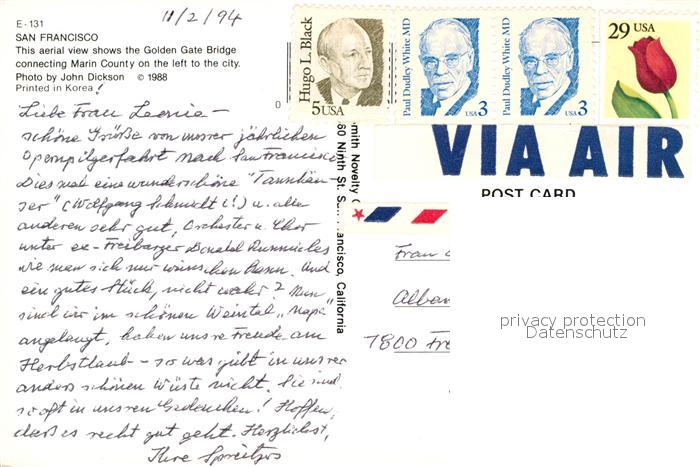 11/2/94
E-131
SAN FRANCISCO
This aerial view shows the Golden Gate Bridge
connecting Marin County on the left to the city.
Photo by John Dickson © 1988
Printed in Korea!
Liebe Frau Leonie –
schöne Grüße von unsrer jährlichen
Opernpilgerfahrt nach San Francisco
Diesmal eine wunderschöne "Tannhäu-
ser" (Wolfgang Schmidt (!) u. alle
anderen sehr gut, Orchester u. Chor
unter ex-Freiburger Donald Runnicles
wie man sich nur wünschen kann. Und
ein gutes Stück, nicht wahr? Nun
sind wir im schönen Weintal "Napa"
angelangt, haben unsre Freude am
Herbstlaub – so was gibt in unsrer
anders schönen Wüste nicht. Sie sind
so oft in unsren Gedenken! Hoffen,
daß es recht gut geht. Herzlichst,
Ihre Spreitzers
Hugo L. Black
5 USA
Paul Dudley White MD
USA 3
Paul Dudley White MD
USA 3
29 USA
VIA AIR
POST CARD
Smith Novelty C
60 Ninth St. San Francisco, California
Frau
Alban
7800 Fre
privacy protection
Datenschutz